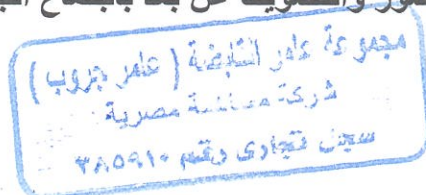 والتصويت عن بعد
مجموعة عامر القابضة ( عامر جروب )
شركة مساهمة مصرية
سجل تجارى رقم ٣٨٥٩١٠